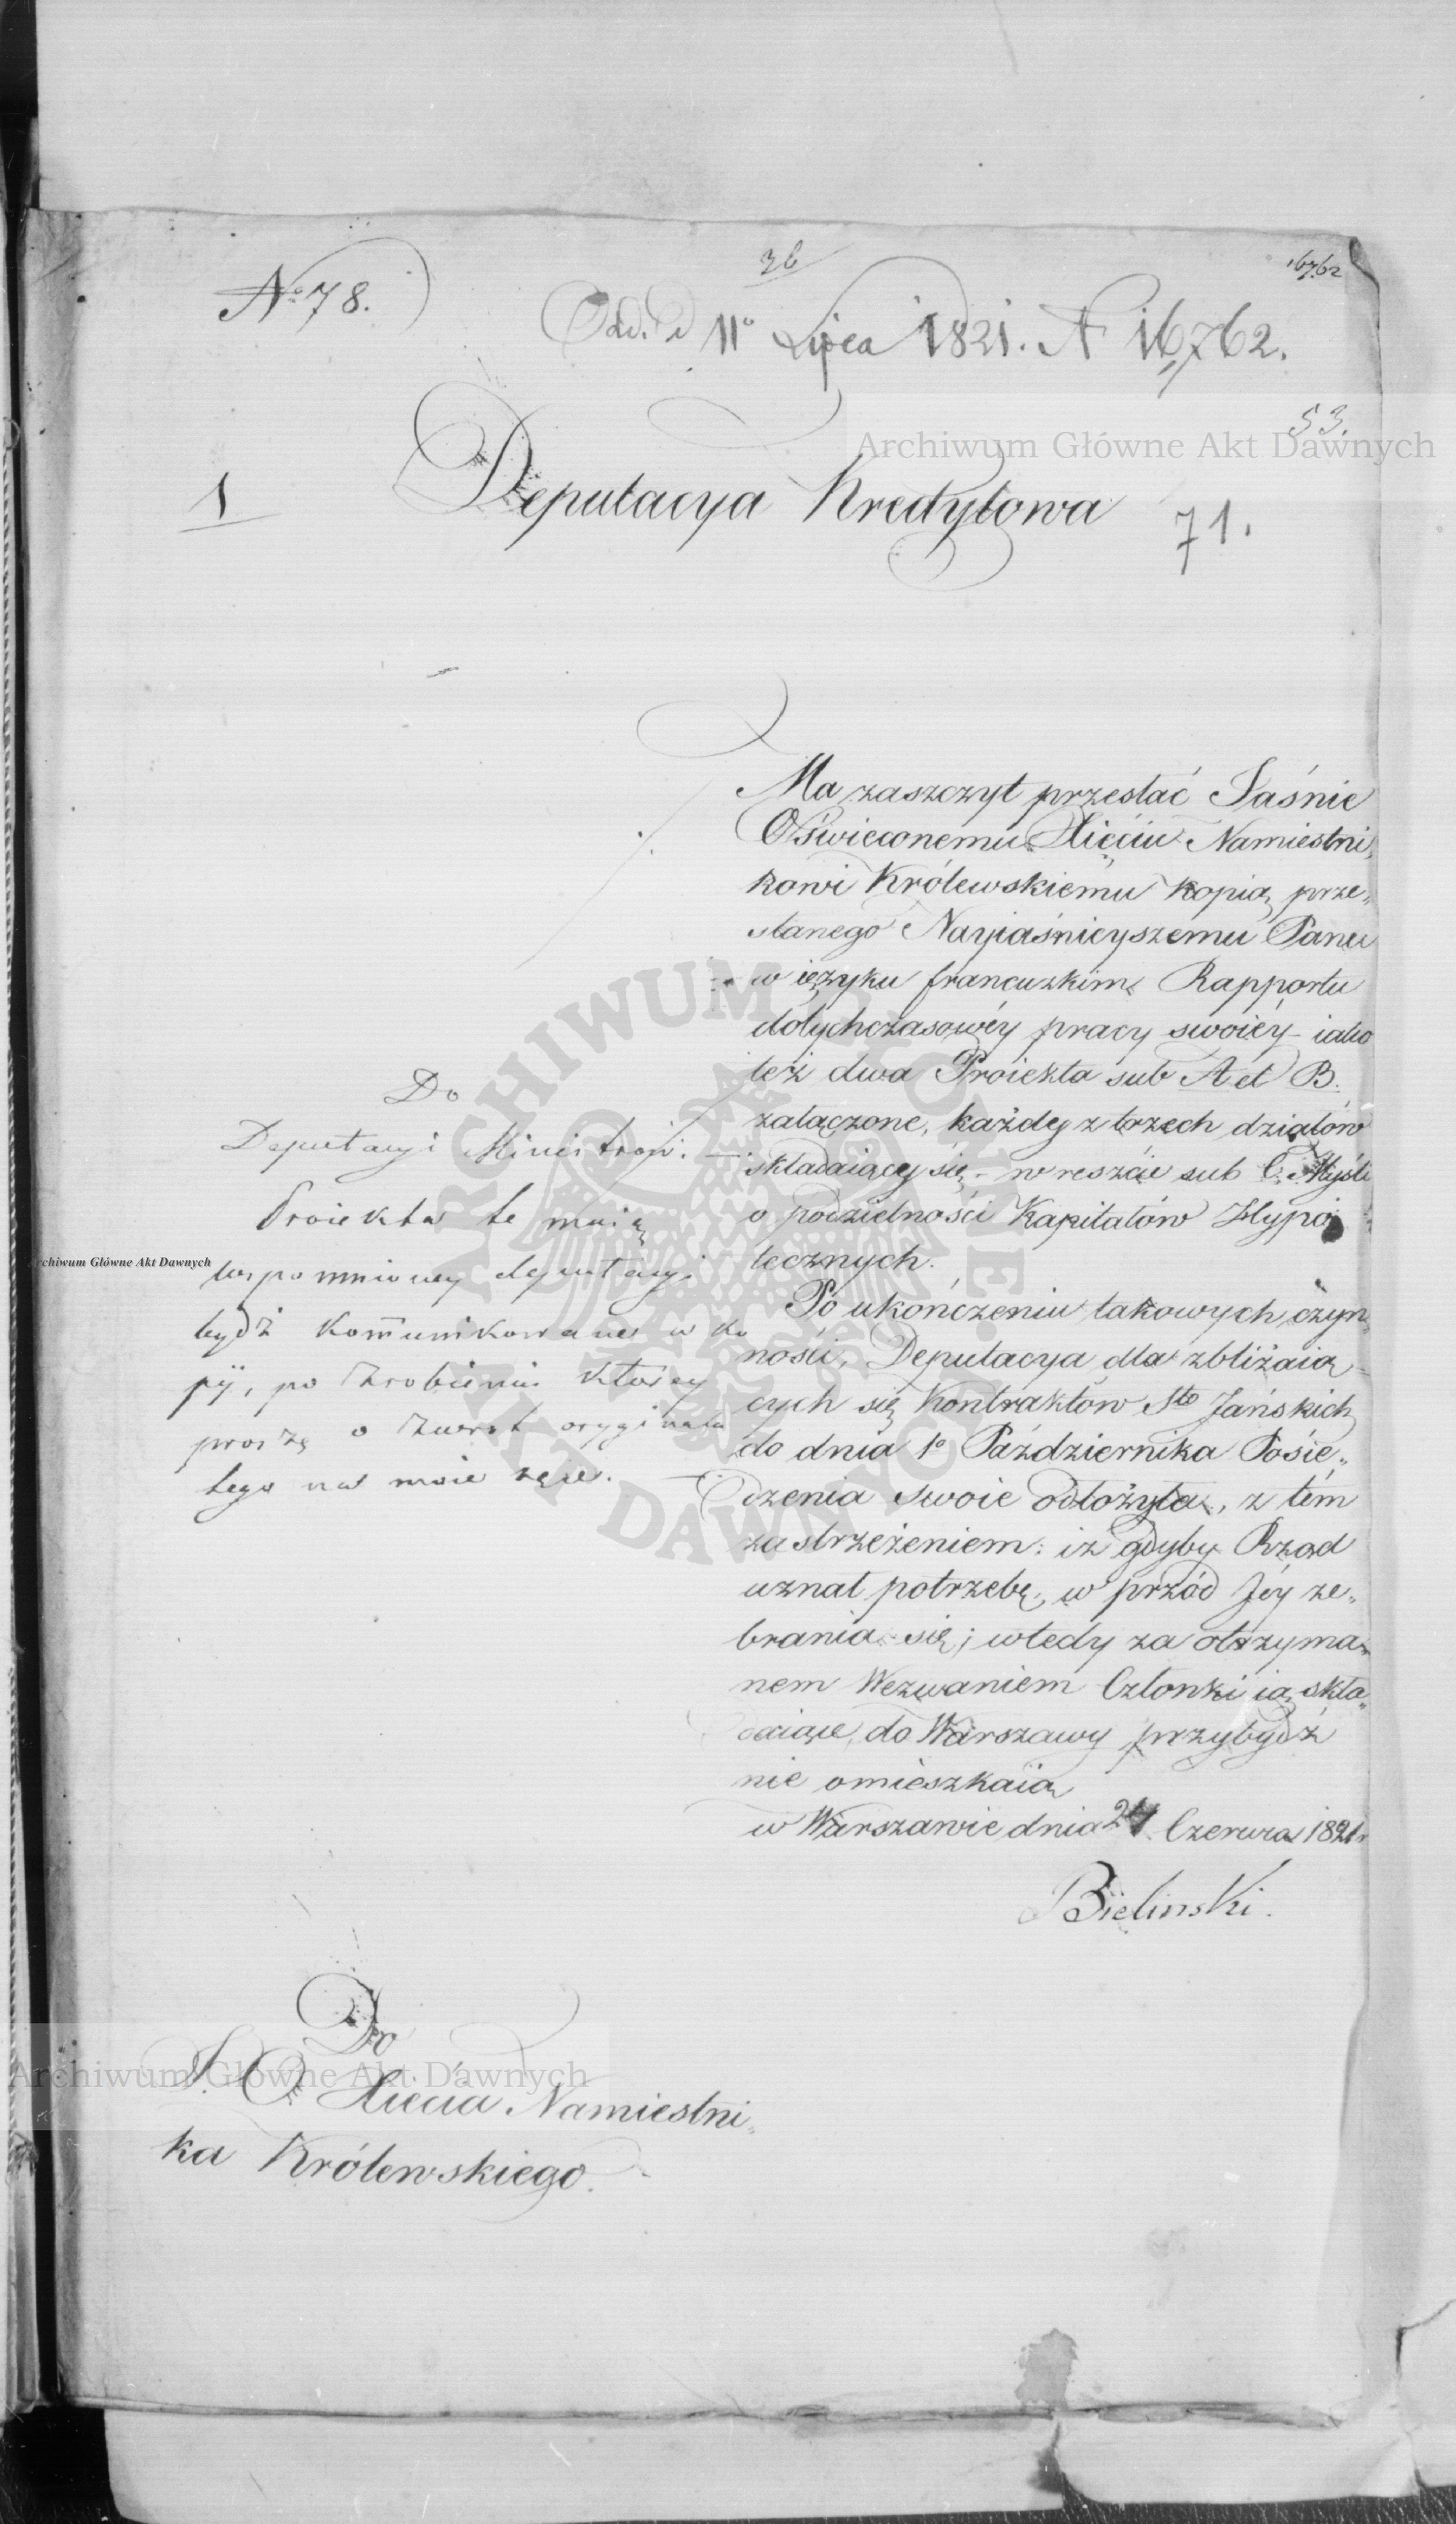 36
16762
No 78.
Odd. d 11o Lipca 1821. N 16,762.
53.
Archiwum Główne Akt Dawnych
1
Deputacya Kredytowa
71.
Ma zaszczyt przesłać Jaśnie
Oświeconemu Xięciu Namiestni„
kowi Królewskiemu kopią prze„
słanego Nayiaśnieyszemu Panu
w ięzyku francuzkim Rapportu
dotychczasowéy pracy swoiéy – iako
też dwa Proiekta sub A et B.
załączone, każdy z trzech działów
składaiący się – w reszcie sub C. Myśli
o podzielności Kapitałów Hypo„
tecznych.
Po ukończeniu takowych czyn„
ności, Deputacya dla zbliżaią„
cych się Kontraktów Sto Jańskich
do dnia 1o Października Posie„
dzenia swoie odłożyła, z tém
zastrzeżeniem: iż gdyby Rząd
uznał potrzebę, w przód Jéy ze„
brania się; wtedy za otrzyma„
nem Wezwaniem Członki ią skła„
daiące, do Warszawy przybydź
nie omieszkaią
w Warszawie dnia 24 Czerwca 1821r
Bielinski.
Do
Deputacyi Ministrów.
Proiekta te maią
wspomnioney deputacyi
bydź kommunikowane w ko
pij, po zrobieniu którey
proszę o zwrot orygina
łego na moie ręce.
Do
J. O. Xięcia Namiestni„
ka Królewskiego.
Archiwum Główne Akt Dawnych
Archiwum Główne Akt Dawnych
ARCHIWUM GŁÓWNE AKT DAWNYCH